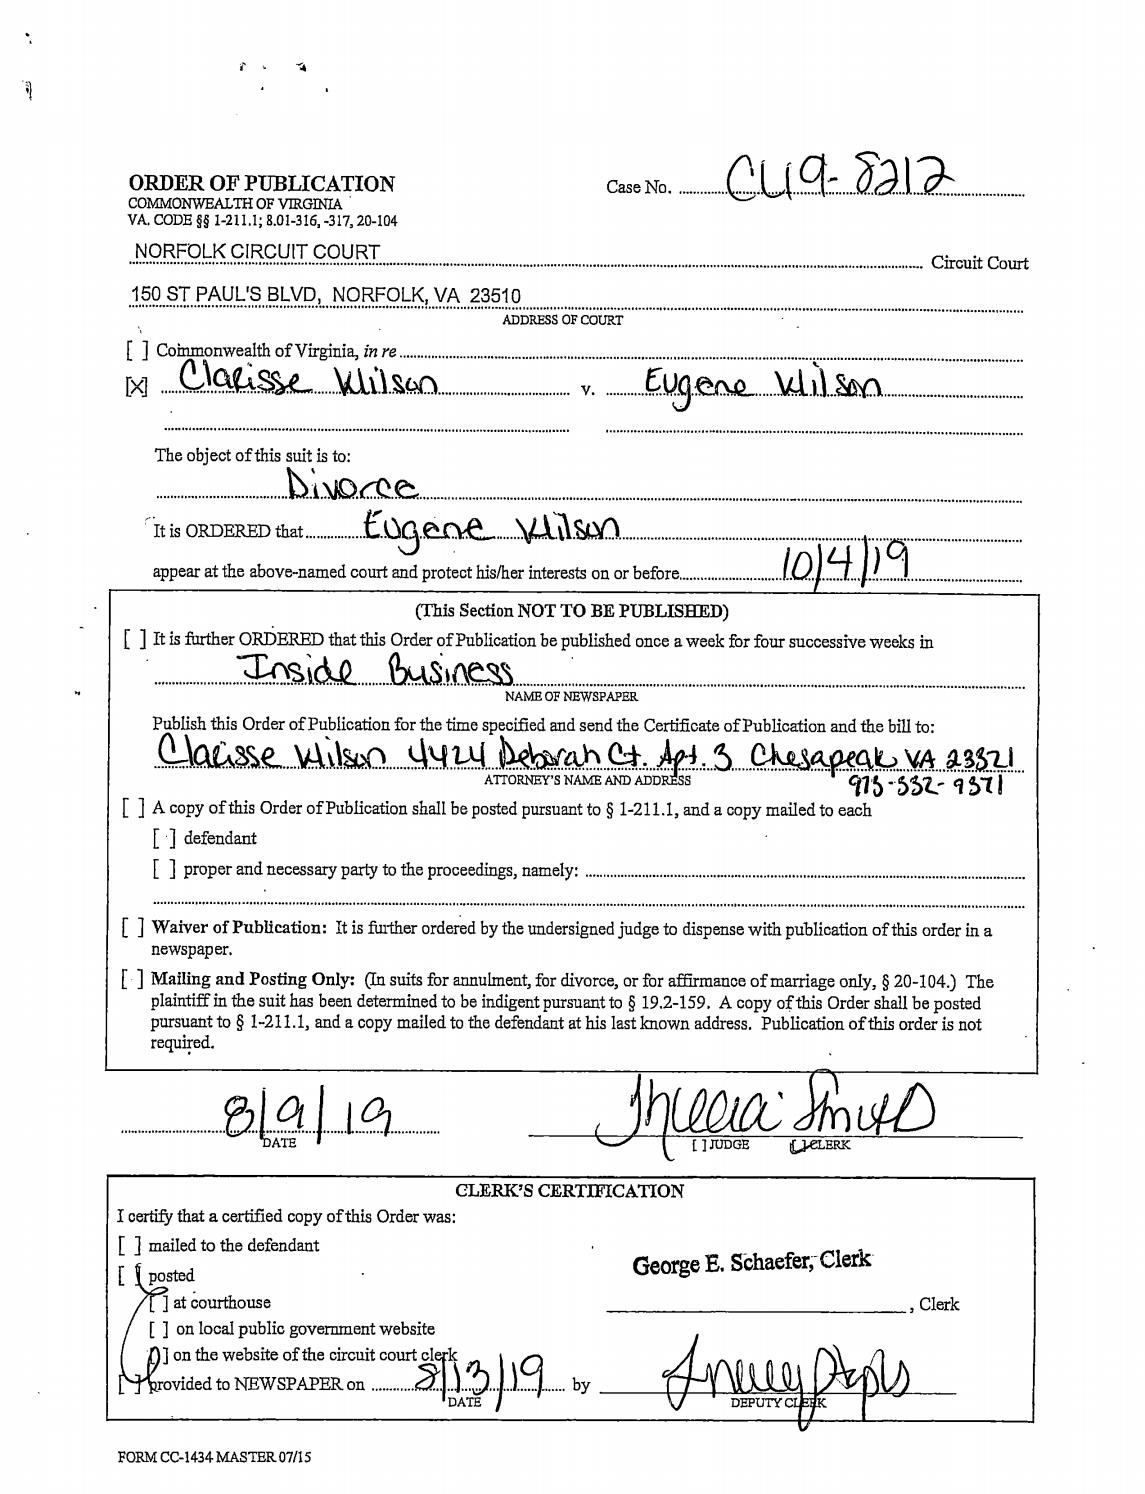 ORDER OF PUBLICATION
Case No. CL19-8212
COMMONWEALTH OF VIRGINIA
VA. CODE §§ 1-211.1; 8.01-316, -317, 20-104
NORFOLK CIRCUIT COURT Circuit Court
150 ST PAUL'S BLVD, NORFOLK, VA 23510
ADDRESS OF COURT
[ ] Commonwealth of Virginia, in re
[X] Clarisse Wilson v. Eugene Wilson
The object of this suit is to:
Divorce
It is ORDERED that Eugene Wilson
appear at the above-named court and protect his/her interests on or before 10/4/19
(This Section NOT TO BE PUBLISHED)
[ ] It is further ORDERED that this Order of Publication be published once a week for four successive weeks in
Inside Business
NAME OF NEWSPAPER
Publish this Order of Publication for the time specified and send the Certificate of Publication and the bill to:
Clarisse Wilson 4424 Deborah Ct. Apt. 3 Chesapeak VA 23321
ATTORNEY'S NAME AND ADDRESS
973-332-9371
[ ] A copy of this Order of Publication shall be posted pursuant to § 1-211.1, and a copy mailed to each
[ ] defendant
[ ] proper and necessary party to the proceedings, namely:
[ ] Waiver of Publication: It is further ordered by the undersigned judge to dispense with publication of this order in a
newspaper.
[ ] Mailing and Posting Only: (In suits for annulment, for divorce, or for affirmance of marriage only, § 20-104.) The
plaintiff in the suit has been determined to be indigent pursuant to § 19.2-159. A copy of this Order shall be posted
pursuant to § 1-211.1, and a copy mailed to the defendant at his last known address. Publication of this order is not
required.
8/9/19
DATE
[ ] JUDGE [ ] CLERK
CLERK'S CERTIFICATION
I certify that a certified copy of this Order was:
[ ] mailed to the defendant
George E. Schaefer, Clerk
[ ] posted
[ ] at courthouse
, Clerk
[ ] on local public government website
[ ] on the website of the circuit court clerk
[ ] provided to NEWSPAPER on 8/13/19 by
DATE
DEPUTY CLERK
FORM CC-1434 MASTER 07/15